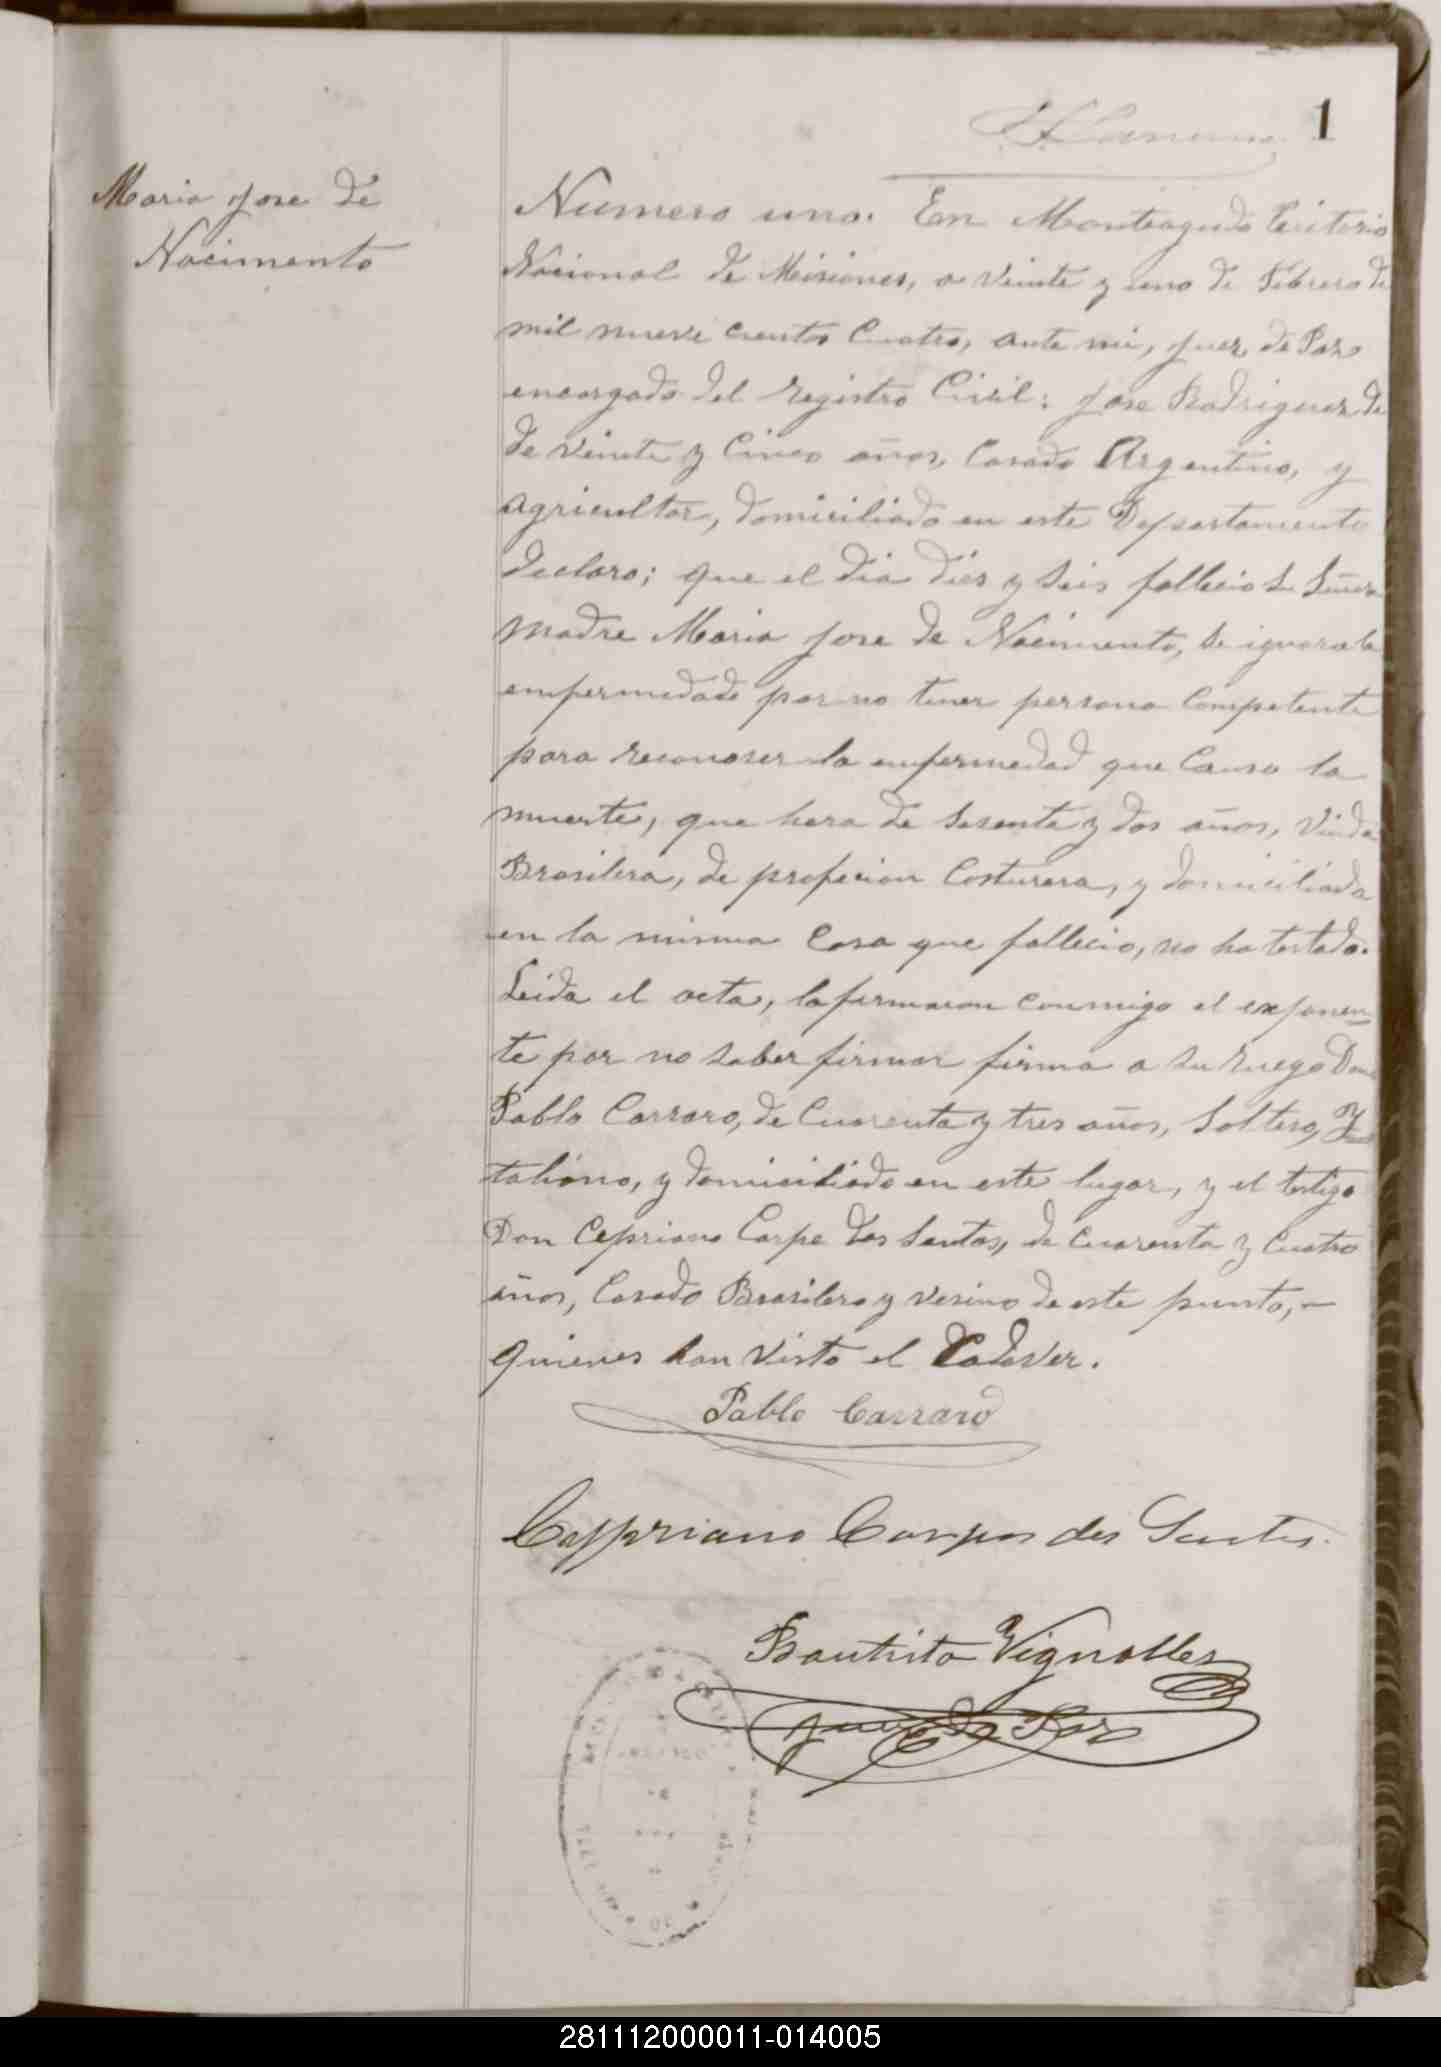 1
Maria Jose de
Nacimento
Numero uno. En Monteagudo Teritorio
Nacional de Misiones, a veinte y uno de Febrero de
mil nueve cientos Cuatro, ante mi, Juez de Paz
encargado del Registro Civil: Jose Rodriguez de
de veinte y Cinco años, Casado Argentino, y
agricultor, domiciliado en este Departamento
declaro; que el dia dies y seis fallecio su Señora
madre Maria Jose de Nacimento, se ignora la
enfermedade por no tener persona Competente
para reconoser la enfermedad que Causo la
muerte, que hera de sesenta y dos años, Viuda
Brasilera, de profecion Costurera, y domiciliada
en la misma Casa que fallecio, no ha testado.
Leida el acta, la firmaron conmigo el exponen-
te por no saber firmar firma a su ruego Don
Pablo Carraro, de Cuarenta y tres años, Soltero, Y-
taliano, y domiciliado en este lugar, y el testigo
Don Cepriano Corpe dos Santos, de Cuarenta y Cuatro
años, Casado Brasilero y vesino de este punto,-
quienes han visto el Cadaver.
Pablo Carraro
Cypriano Corpos des Santos.
Bautista Vignolles
Juez de Paz
281112000011-014005